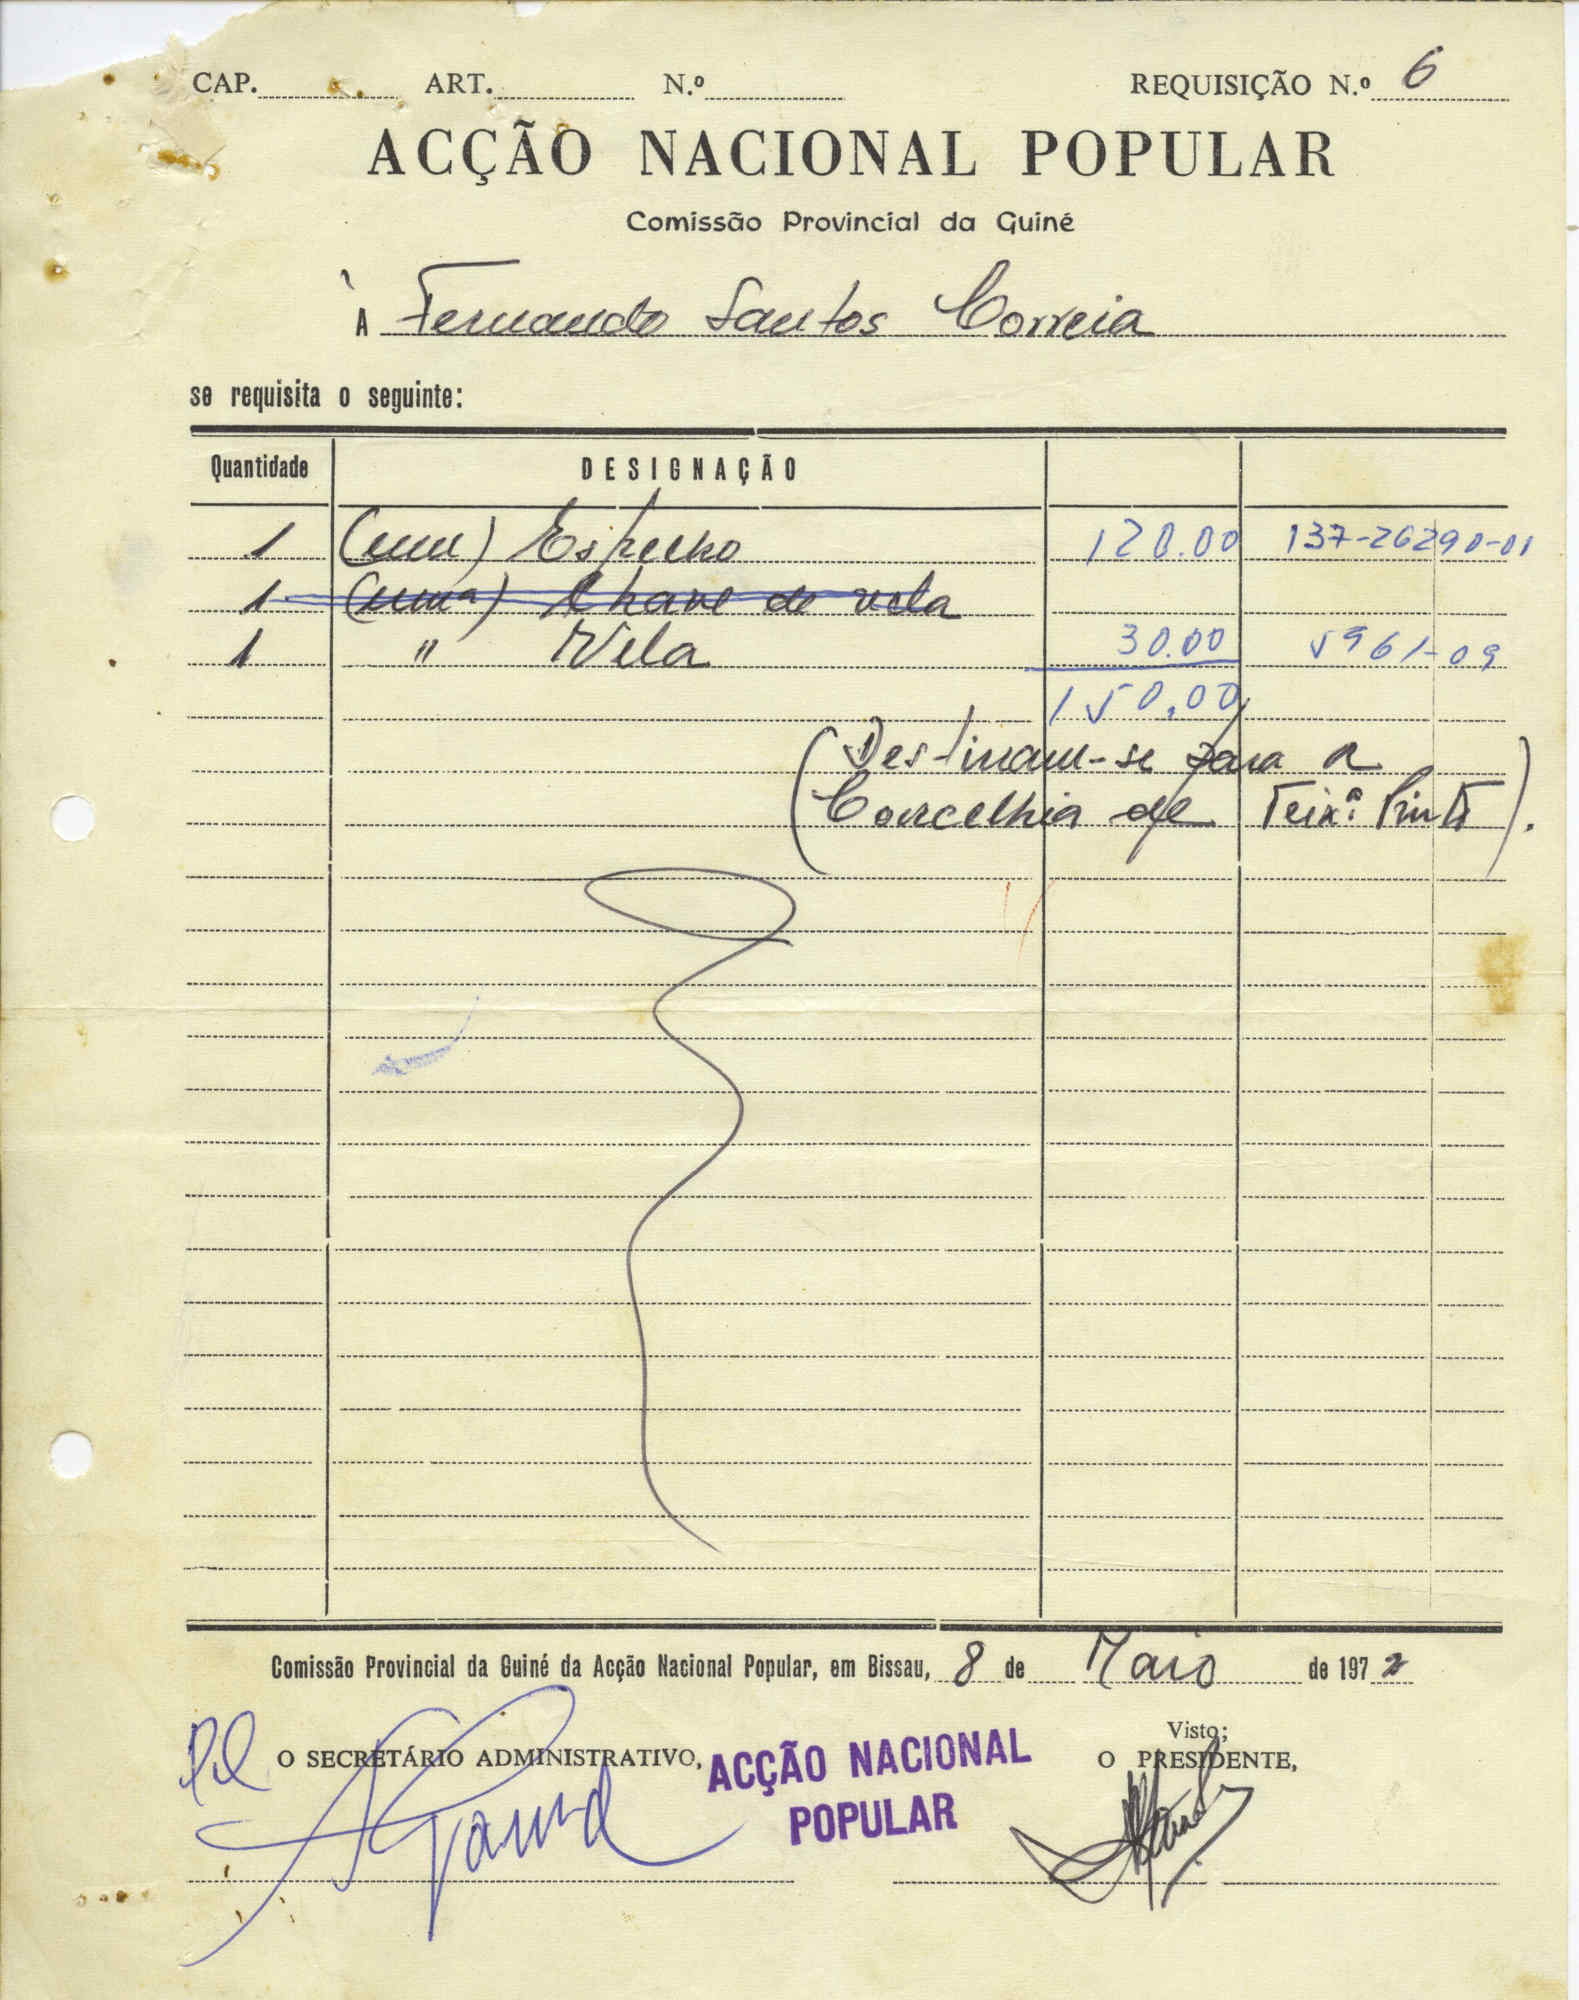 CAP. ART. N.º REQUISIÇÃO N.º 6
ACÇÃO NACIONAL POPULAR
Comissão Provincial da Guiné
À Fernando Santos Correia
se requisita o seguinte:
Quantidade DESIGNAÇÃO
1 (um) Espelho 120.00 137-26290-01
1 (uma) Chave de vela
1 " Vela 30.00 5961-09
150,00
(Destinam-se para a
Concelhia de Teixª Pinto).
Comissão Provincial da Guiné da Acção Nacional Popular, em Bissau, 8 de Maio de 1972
Visto;
O SECRETÁRIO ADMINISTRATIVO, O PRESIDENTE,
ACÇÃO NACIONAL
POPULAR